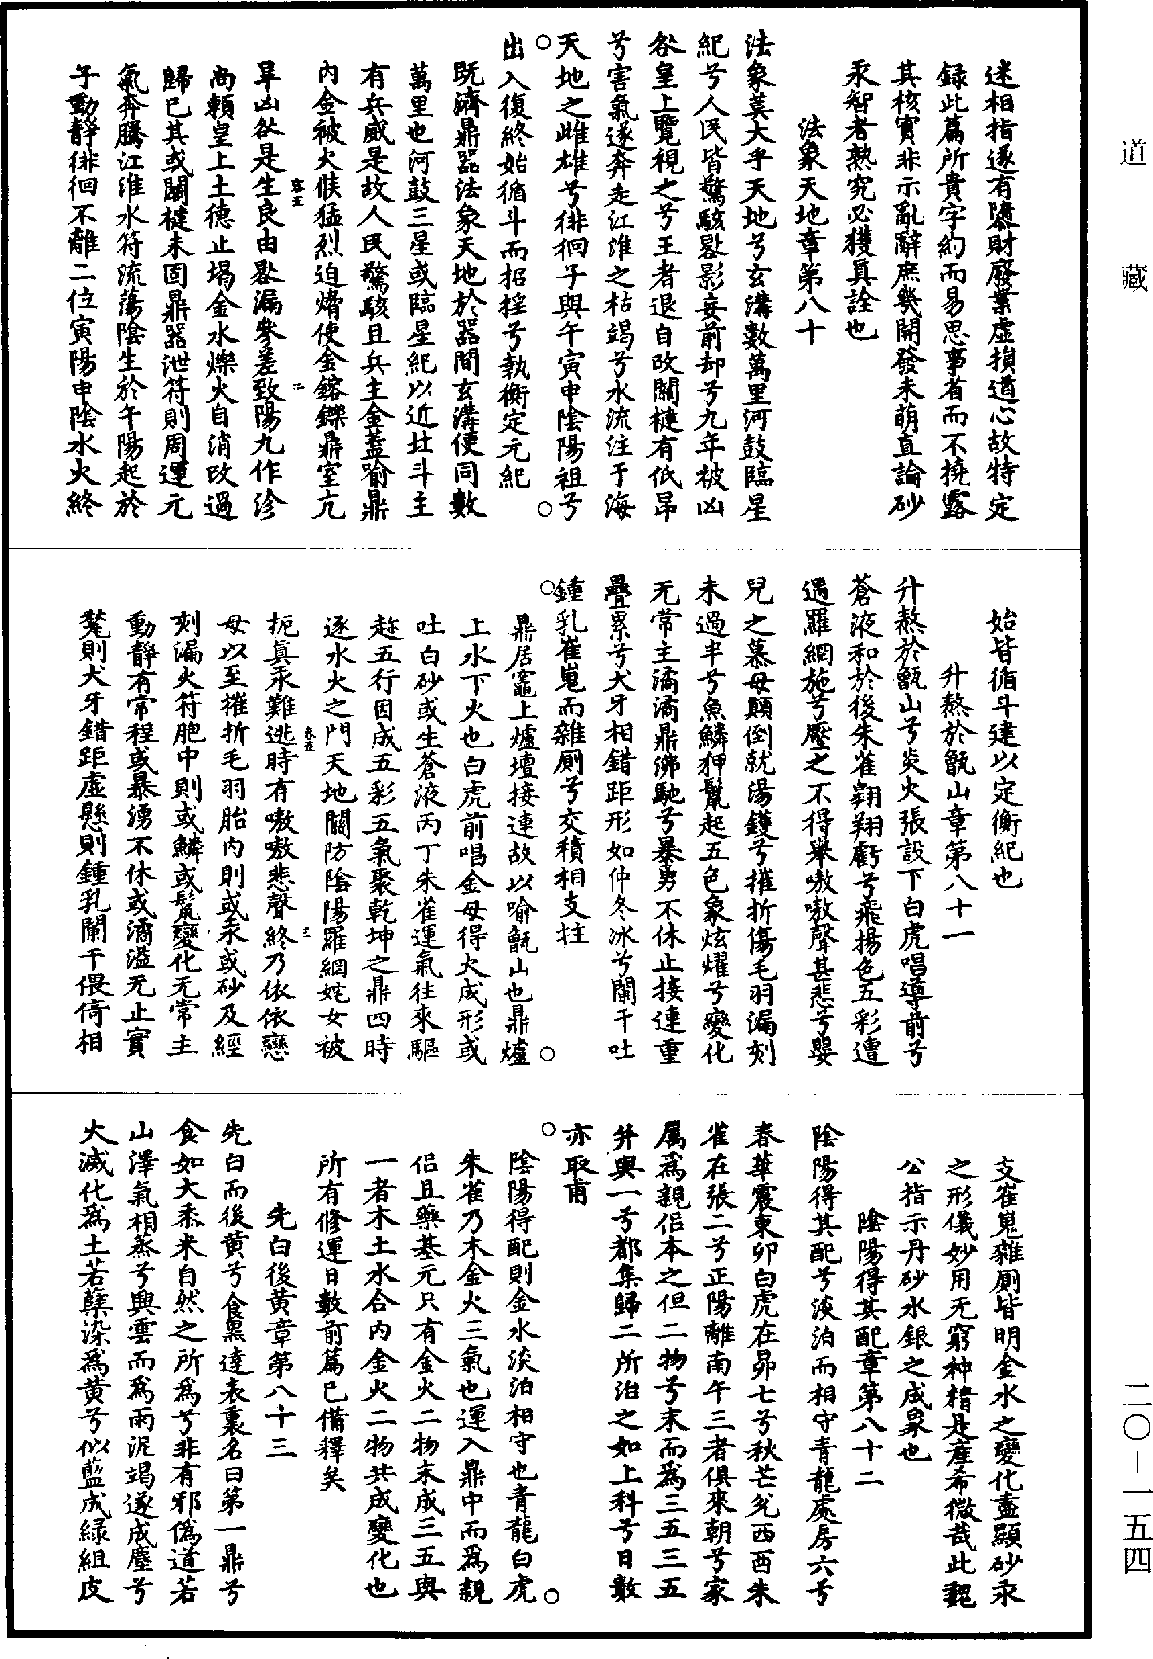 迷相指遂有隳財廢業虛損道心故特定
録此篇所貴字約而易思事省而不撓露
其核實非示亂辭庶幾開發未萌直論砂
汞智者熟究必獲真詮也
法象天地章第八十
法象莫大乎天地兮玄溝數萬里河鼓臨星
紀兮人民皆驚駭晷影妄前却兮九年被凶
咎皇上覽視之兮王者退自改關楗有低昂
兮害氣遂奔走江淮之枯竭兮水流注于海
天地之雌雄兮徘徊子與午寅申陰陽祖兮
出入復終始循斗而招搖兮執衡定元紀
既濟鼎器法象天地於器間玄溝便同數
萬里也河鼓三星或臨星紀以近北斗主
有兵威是故人民驚駭且兵主金蓋喻鼎
內金被火候猛烈迫熻使金鎔鑠鼎室亢
旱凶咎是生良由晷漏參差致陽九作沴
尚賴皇上土德止堨金水爍火自消改過
歸已其或關楗未固鼎器泄符則周運元
氣奔騰江淮水符流蕩陰生於午陽起於
子動靜徘徊不離二位寅陽申陰水火終
始皆循斗建以定衡紀也
升熬於甑山章第八十一
升熬於甑山兮炎火張設下白虎唱導前兮
蒼液和於後朱雀翱翔虧兮飛揚色五彩遭
遇羅網施兮壓之不得舉嗷嗷聲甚悲兮嬰
兒之慕母顛倒就湯鑊兮摧折傷毛羽漏刻
未過半兮魚鱗狎鬣起五色象炫耀兮變化
无常主潏潏鼎沸馳兮暴勇不休止接連重
疊累兮犬牙相錯距形如仲冬冰兮闌干吐
鍾乳崔嵬而雜廁兮交積相支拄
鼎居竈上爐壇接連故以喻甑山也鼎爐
上水下火也白虎前唱金母得火成形或
吐白砂或生蒼液丙丁朱雀運氣往來驅
趂五行因成五彩五氣聚乾坤之鼎四時
逐水火之門天地關防陰陽羅網姹女被
扼真汞難逃時有嗷嗷悲聲終乃依依戀
母以至摧折毛羽胎內則或汞或砂及經
刻漏火符胞中則或鱗或鬣變化无常主
動靜有常程或暴湧不休或潏溢无止實
凳則犬牙錯距虛懸則鍾乳闌干偎倚相
支崔嵬雜廁皆明金水之變化盡顯砂汞
之形儀妙用无窮神精是產希微哉此魏
公指示丹砂水銀之成象也
陰陽得其配章第八十二
陰陽得其配兮淡泊而相守青龍處房六兮
春華震東卯白虎在昴七兮秋芒兌西酉朱
雀在張二兮正陽離南午三者俱來朝兮家
屬為親侶本之但二物兮末而為三五三五
并與一兮都集歸二所治之如上科兮日數
亦取甫
陰陽得配則金水淡泊相守也青龍白虎
朱雀乃木金火三氣也運入鼎中而為親
侶且藥基元只有金火二物末成三五與
一者木土水合內金火二物共成變化也
所有修運日數前篇已備釋矣
先白後黃章第八十三
先白而後黃兮食黑達表裏名曰第一鼎兮
食如大黍米自然之所為兮非有邪偽道若
山澤氣相蒸兮興雲而為雨泥竭遂成塵兮
火滅化為土若蘖染為黃兮似藍成綠組皮
道藏
二〇—一五四